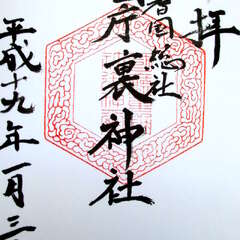 拝
耆国総社
庁裏神社
平成十九年一月三